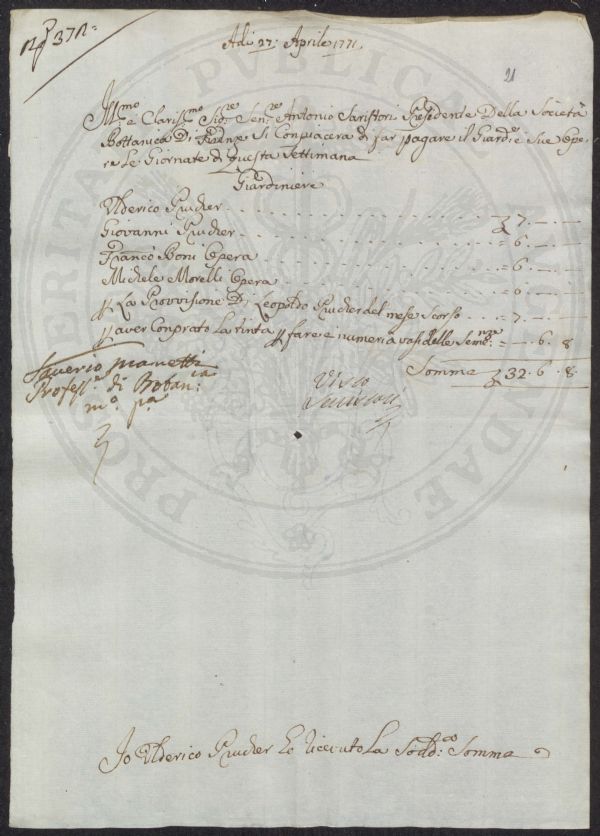 N° 372=
Adi 27: Aprile 1771.
21
Ill:mo e Clariss:mo Sig:re Sen:re Antonio Saristori Presidente Della Società
Bottanica Di Firenze Si Conpiacera di far pagare il Giard:e e Sue Ope=
re Le Giornate di Questa Settimana
Giardiniere
Ulderico Prucker ... 7. — . —
Giovanni Prucker ... = 6. — . —
Franco Boni Opera ... = 6. — . —
Michele Morelli Opera ... = 6. — . —
La Provvisione Di Leopoldo Prucker del mese Scorso ... = 7. — . —
aver Conprato La tinta fare e numeri a vasi delle Sem:nze = — . 6. 8
Somma 32. 6. 8.
Saverio Manetti
Profess:e di Botan:ia
m:o p:a
Visto
Io Ulderico Prucker Ho Ricevuto La Sodd:a Somma
PROSPERITATI PUBLICAE AUGENDAE